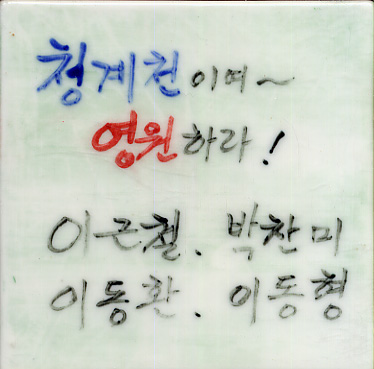 청계천이여~
영원하라!
이근철. 박찬미
이동환. 이동형